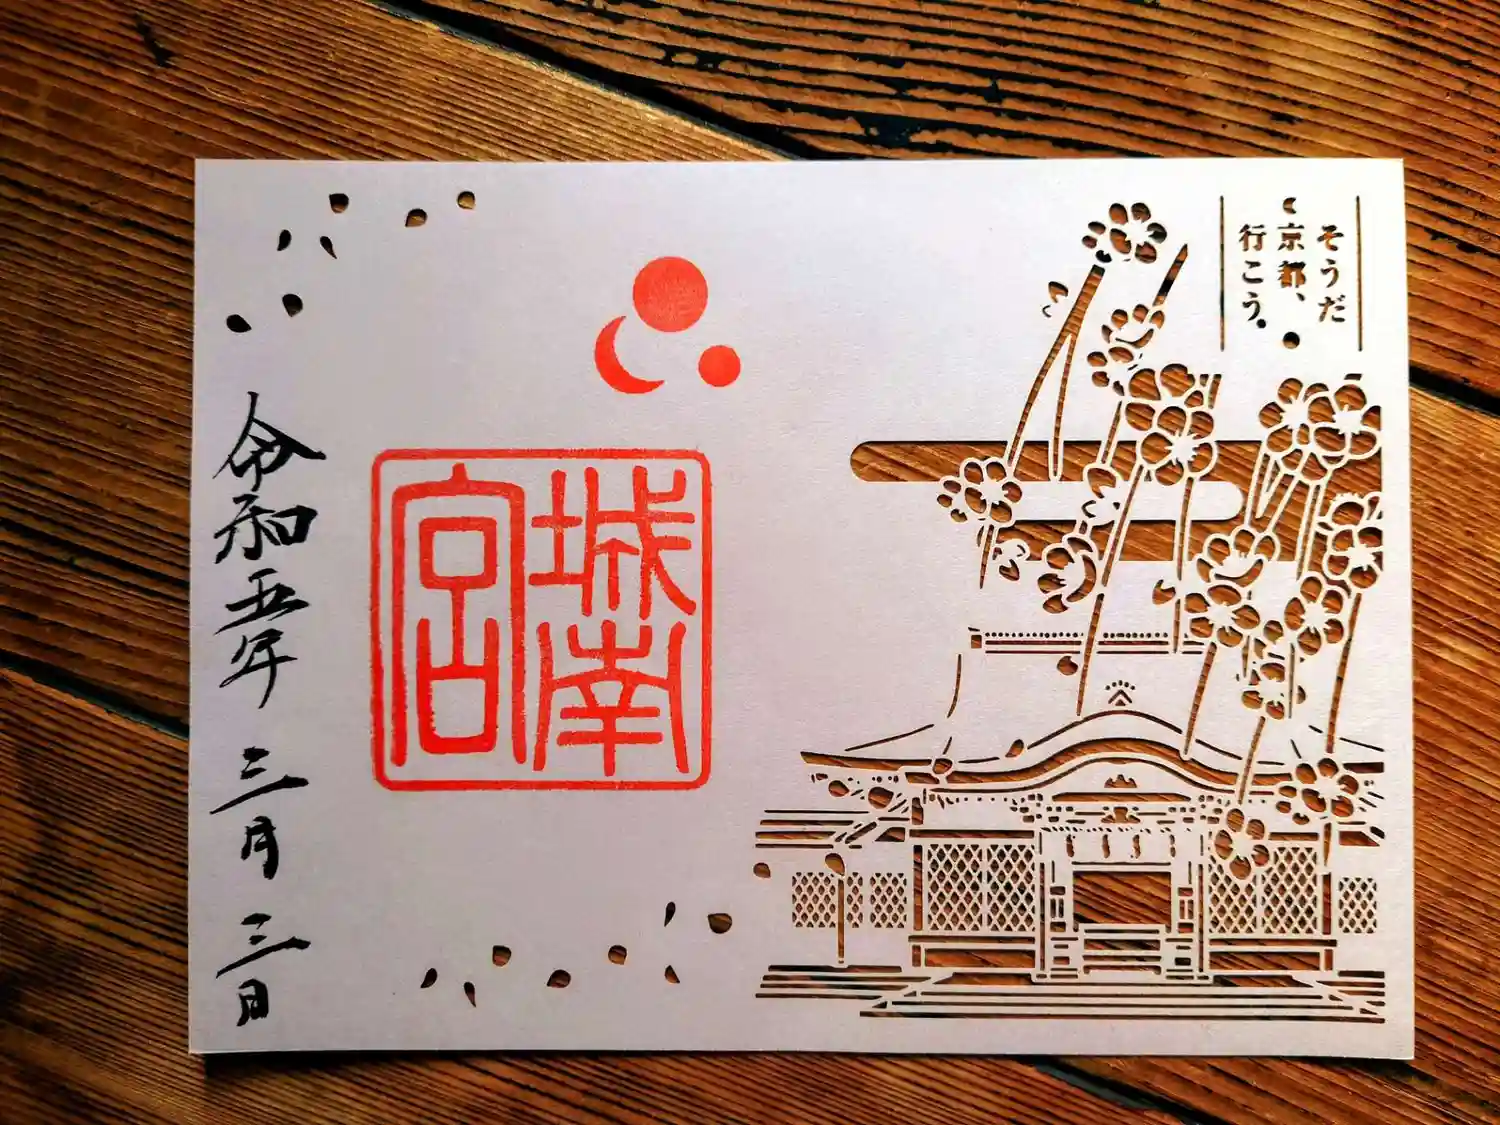 そうだ
京都、
行こう。
城南
宮
令和五年 三月 三日